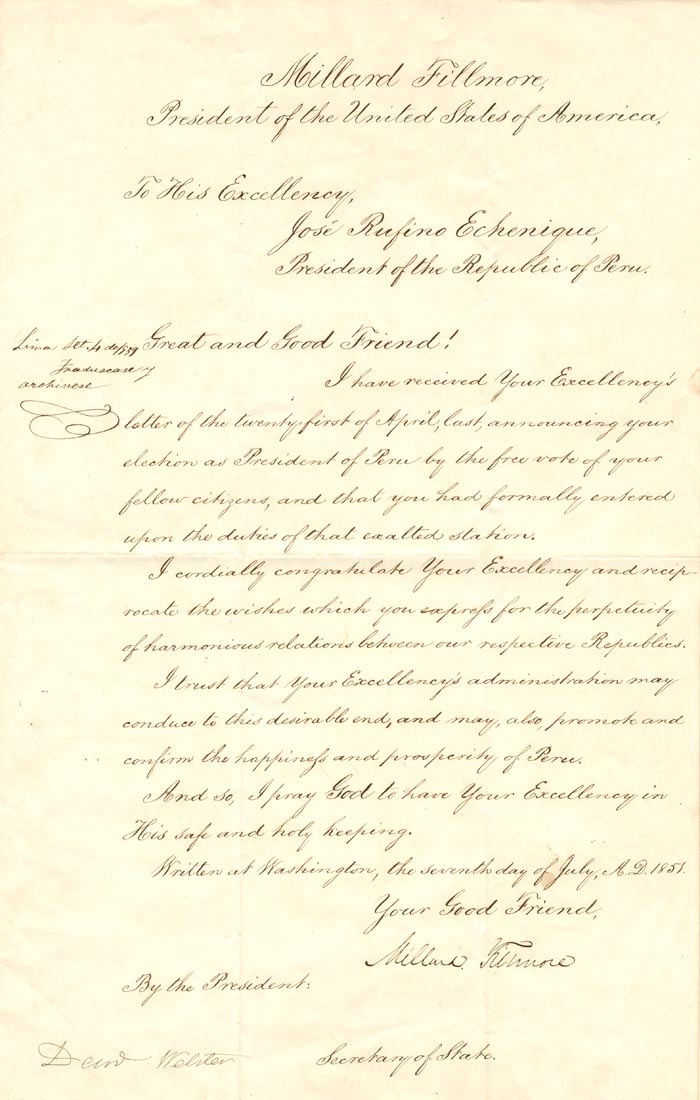 Millard Fillmore,
President of the United States of America,
To His Excellency,
José Rufino Echenique,
President of the Republic of Peru.
Great and Good Friend!
Lima Set. 4 de
Traduzcase y
archivese
I have received Your Excellency's
letter of the twenty-first of April, last, announcing your
election as President of Peru by the free vote of your
fellow citizens, and that you had formally entered
upon the duties of that exalted station.
I cordially congratulate Your Excellency and recip-
rocate the wishes which you express for the perpetuity
of harmonious relations between our respective Republics.
I trust that Your Excellency's administration may
conduce to this desirable end, and may, also, promote and
confirm the happiness and prosperity of Peru.
And so, I pray God to have Your Excellency in
His safe and holy keeping.
Written at Washington, the seventh day of July, A.D. 1851.
Your Good Friend,
Millard Fillmore
By the President:
Danl Webster
Secretary of State.